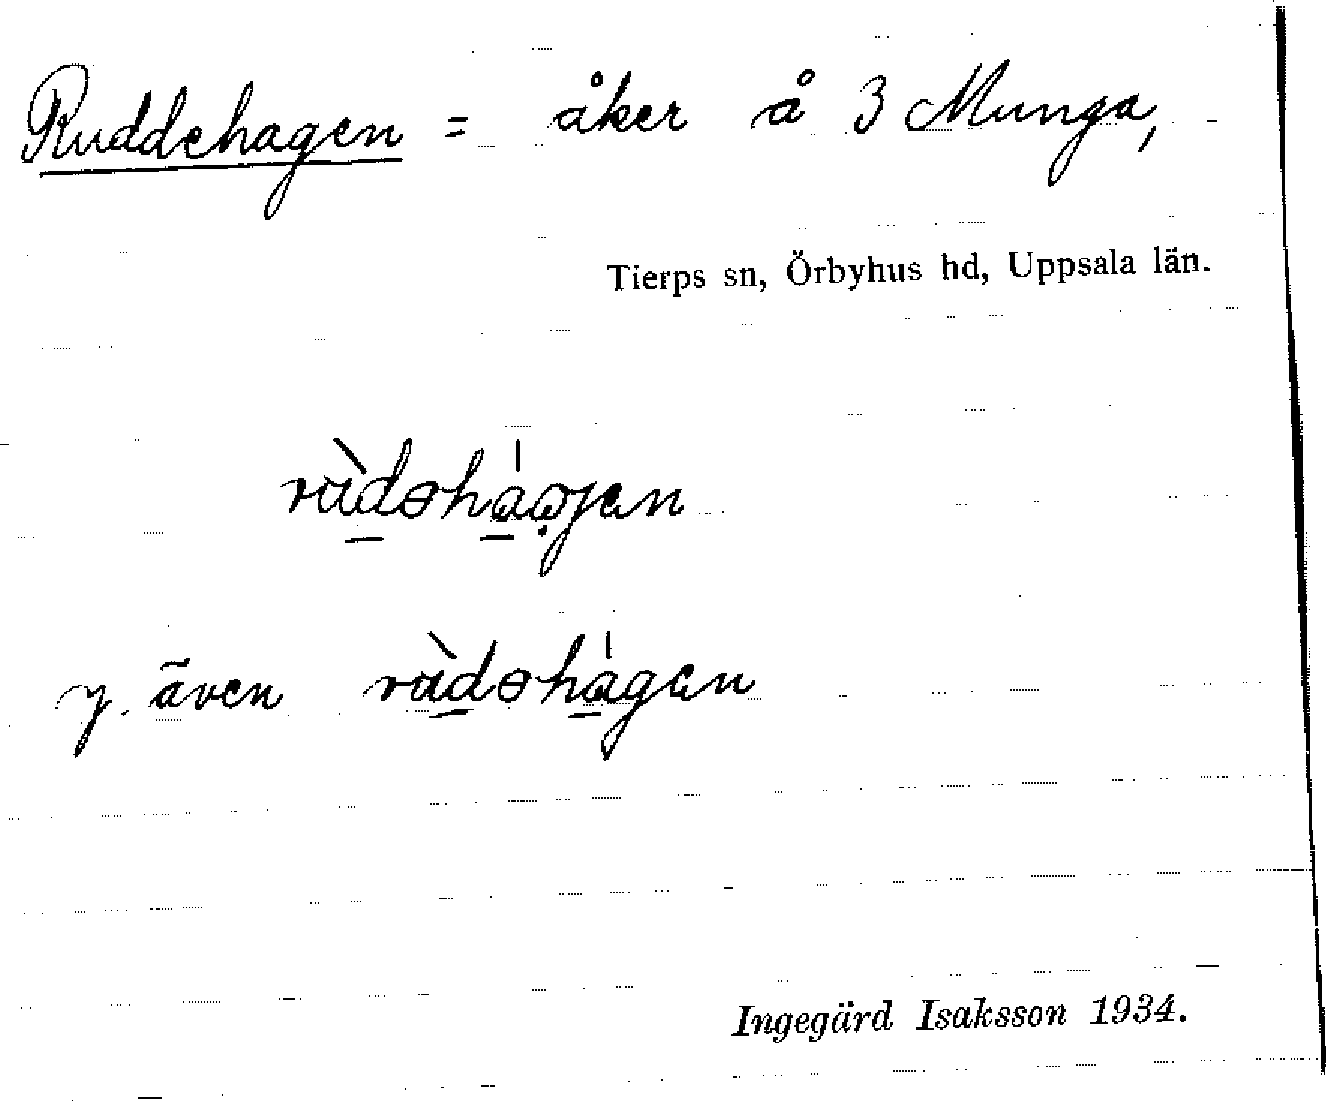 Ruddehagen = åker å 3 Munga,
Tierps sn, Örbyhus hd, Uppsala län.
y. även
Ingegärd Isaksson 1934.